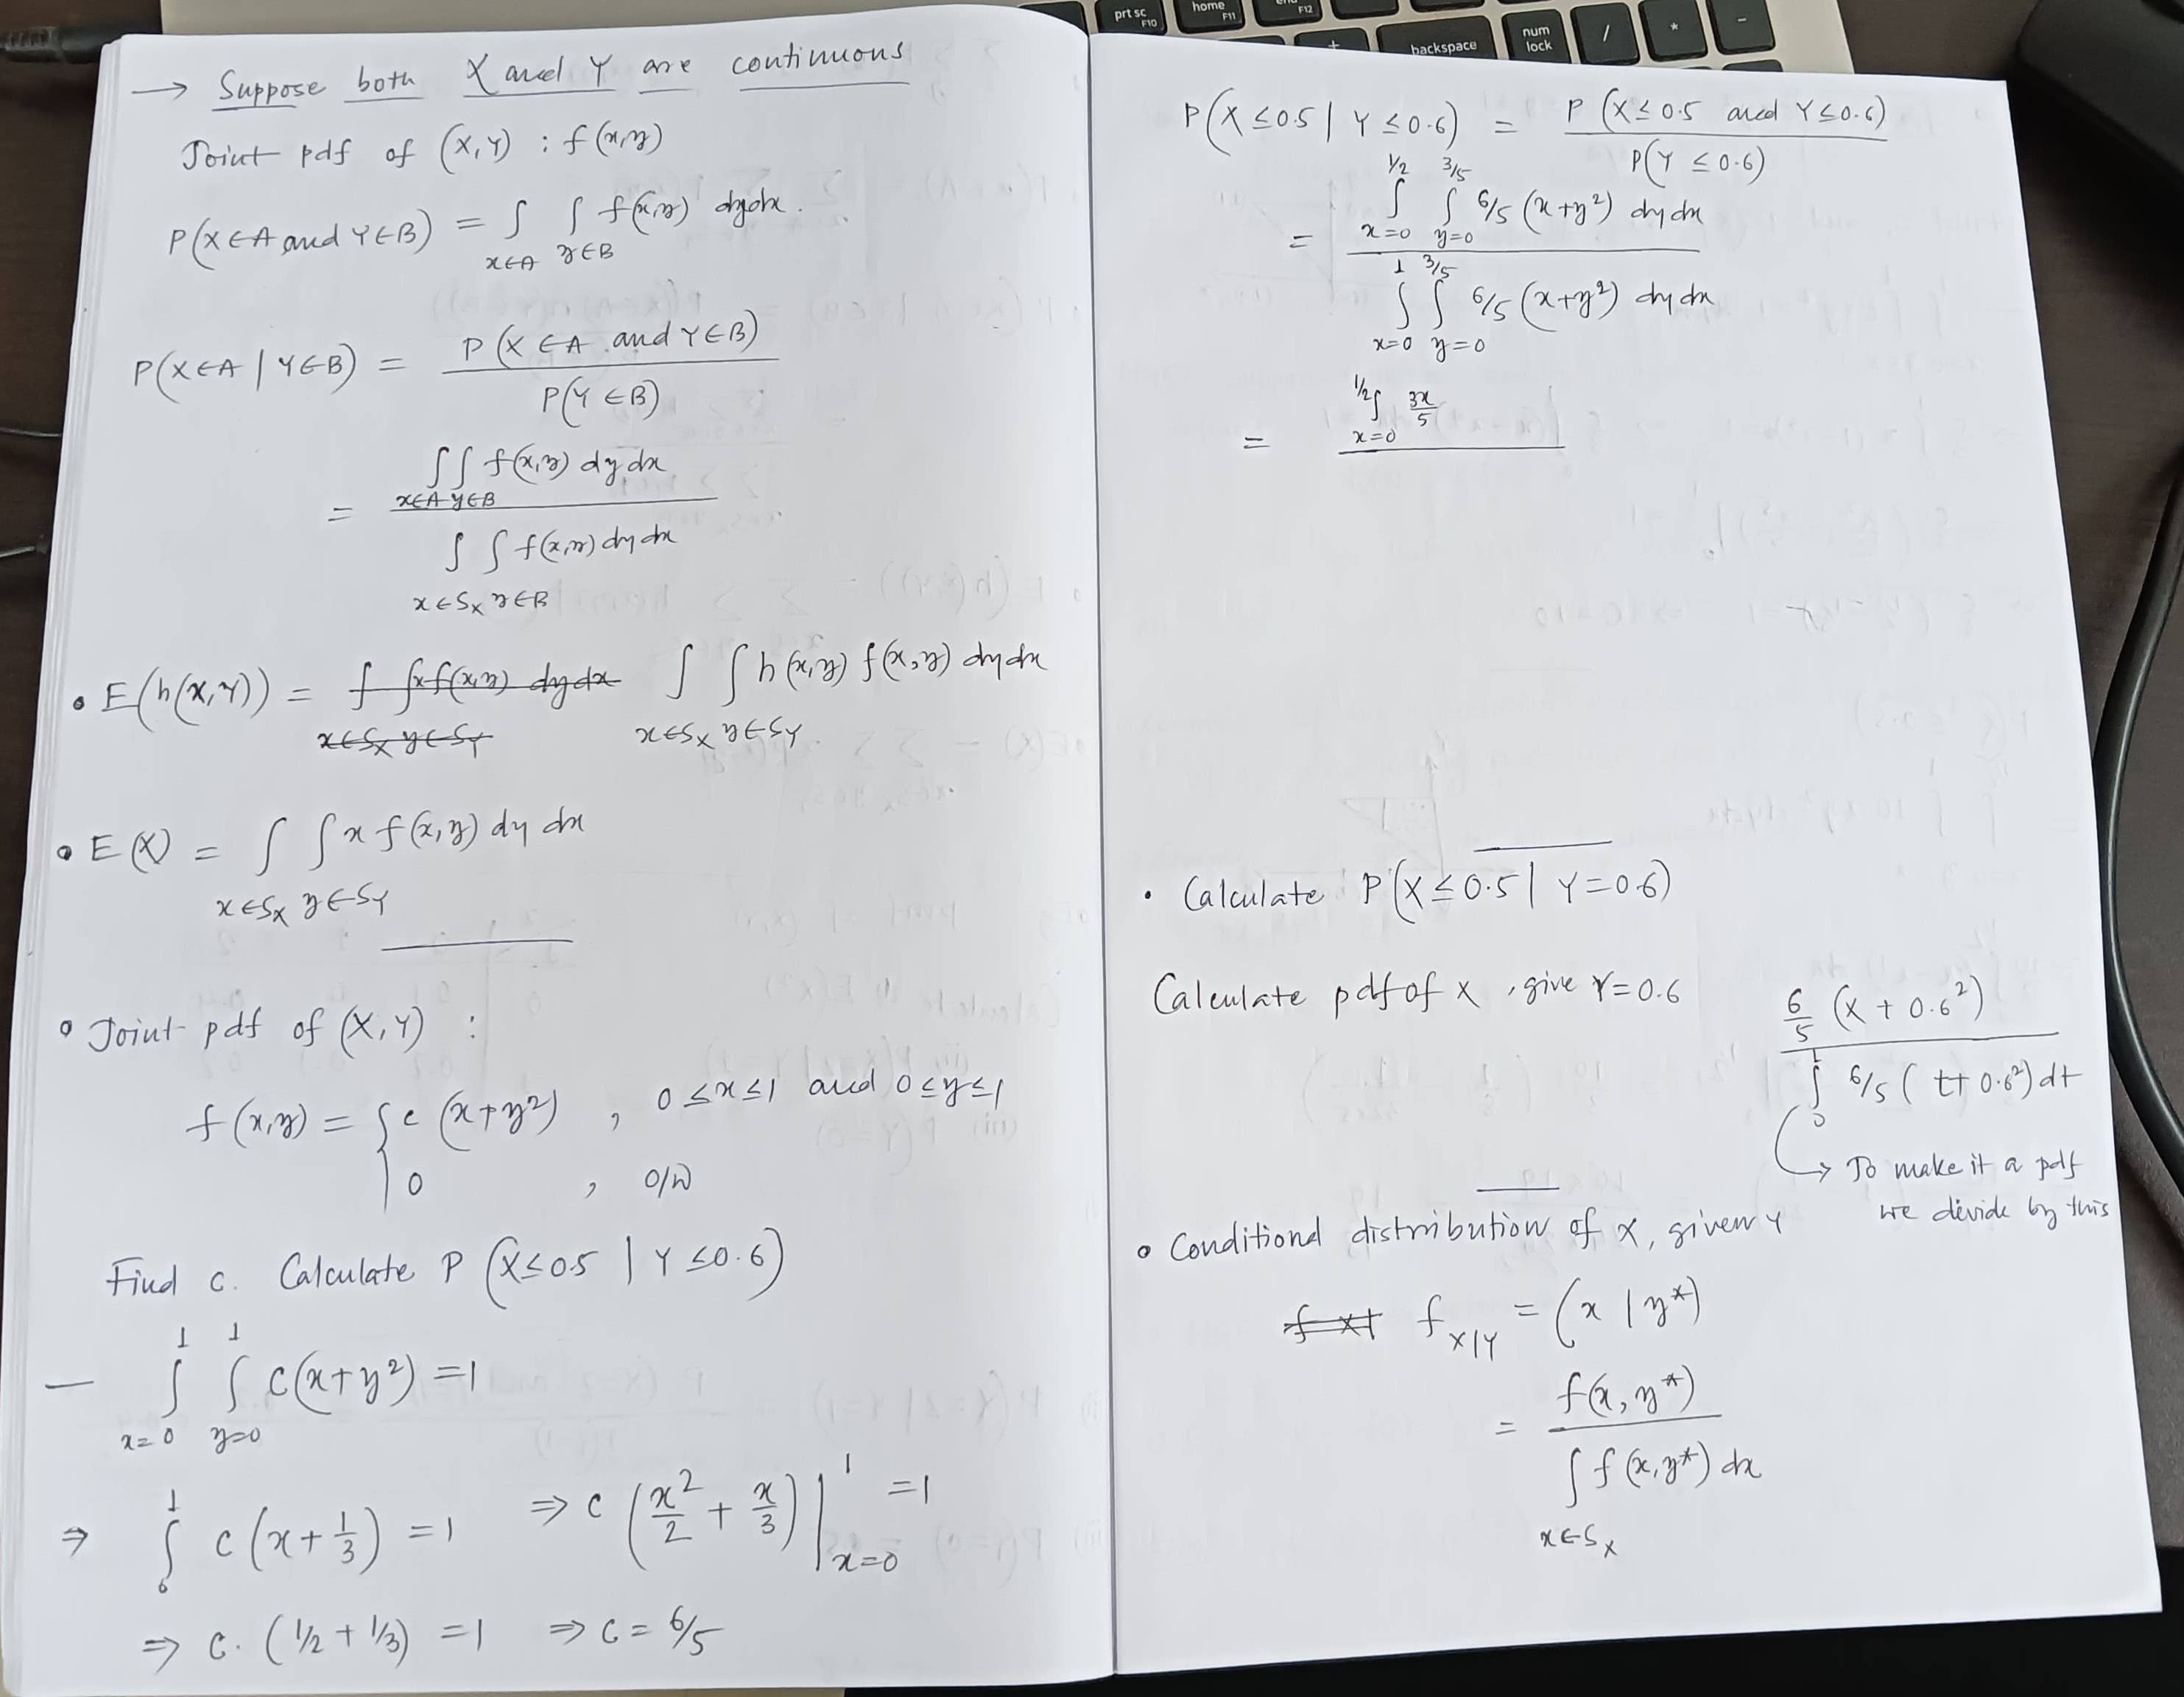 prt sc F10
home F11
end F12
backspace
num lock
/
*
-
→ Suppose both X and Y are continuous
Joint pdf of (X,Y) : f(x,y)
P(X∈A and Y∈B) = ∫ ∫ f(x,y) dydx.
x∈A y∈B
P(X∈A | Y∈B) = P(X∈A and Y∈B) / P(Y∈B)
= ∫∫ f(x,y) dy dx
x∈A y∈B
∫ ∫ f(x,y) dy dx
x∈Sx y∈B
• E(h(X,Y)) = ∫ ∫x f(x,y) dydx ∫ ∫ h(x,y) f(x,y) dydx
x∈Sx y∈SY x∈Sx y∈SY
• E(X) = ∫ ∫ x f(x,y) dy dx
x∈Sx y∈SY
• Joint pdf of (X,Y) :
f(x,y) = { c (x+y²) , 0≤x≤1 and 0≤y≤1
0 , o/w
Find c. Calculate P (X≤0.5 | Y≤0.6)
— ∫ x=0 1 ∫ y=0 1 c(x+y²) = 1
⇒ ∫ 0 1 c(x+1/3) = 1 ⇒ c (x²/2 + x/3) | x=0 1 = 1
⇒ c. (1/2 + 1/3) = 1 ⇒ c = 6/5
P(X≤0.5 | Y≤0.6) = P(X≤0.5 and Y≤0.6) / P(Y≤0.6)
= ∫ x=0 1/2 ∫ y=0 3/5 6/5 (x+y²) dy dx
∫ x=0 1 ∫ y=0 3/5 6/5 (x+y²) dy dx
= ∫ x=0 1/2 3x/5
• Calculate P(X≤0.5 | Y=0.6)
Calculate pdf of x, give Y=0.6
6/5 (x + 0.6²)
∫ 0 1 6/5 (t+0.6²) dt
→ To make it a pdf
we divide by this
• Conditional distribution of X, given Y
f x+ f X|Y = (x | y*)
= f(x, y*)
∫ f(x,y*) dx
x∈Sx